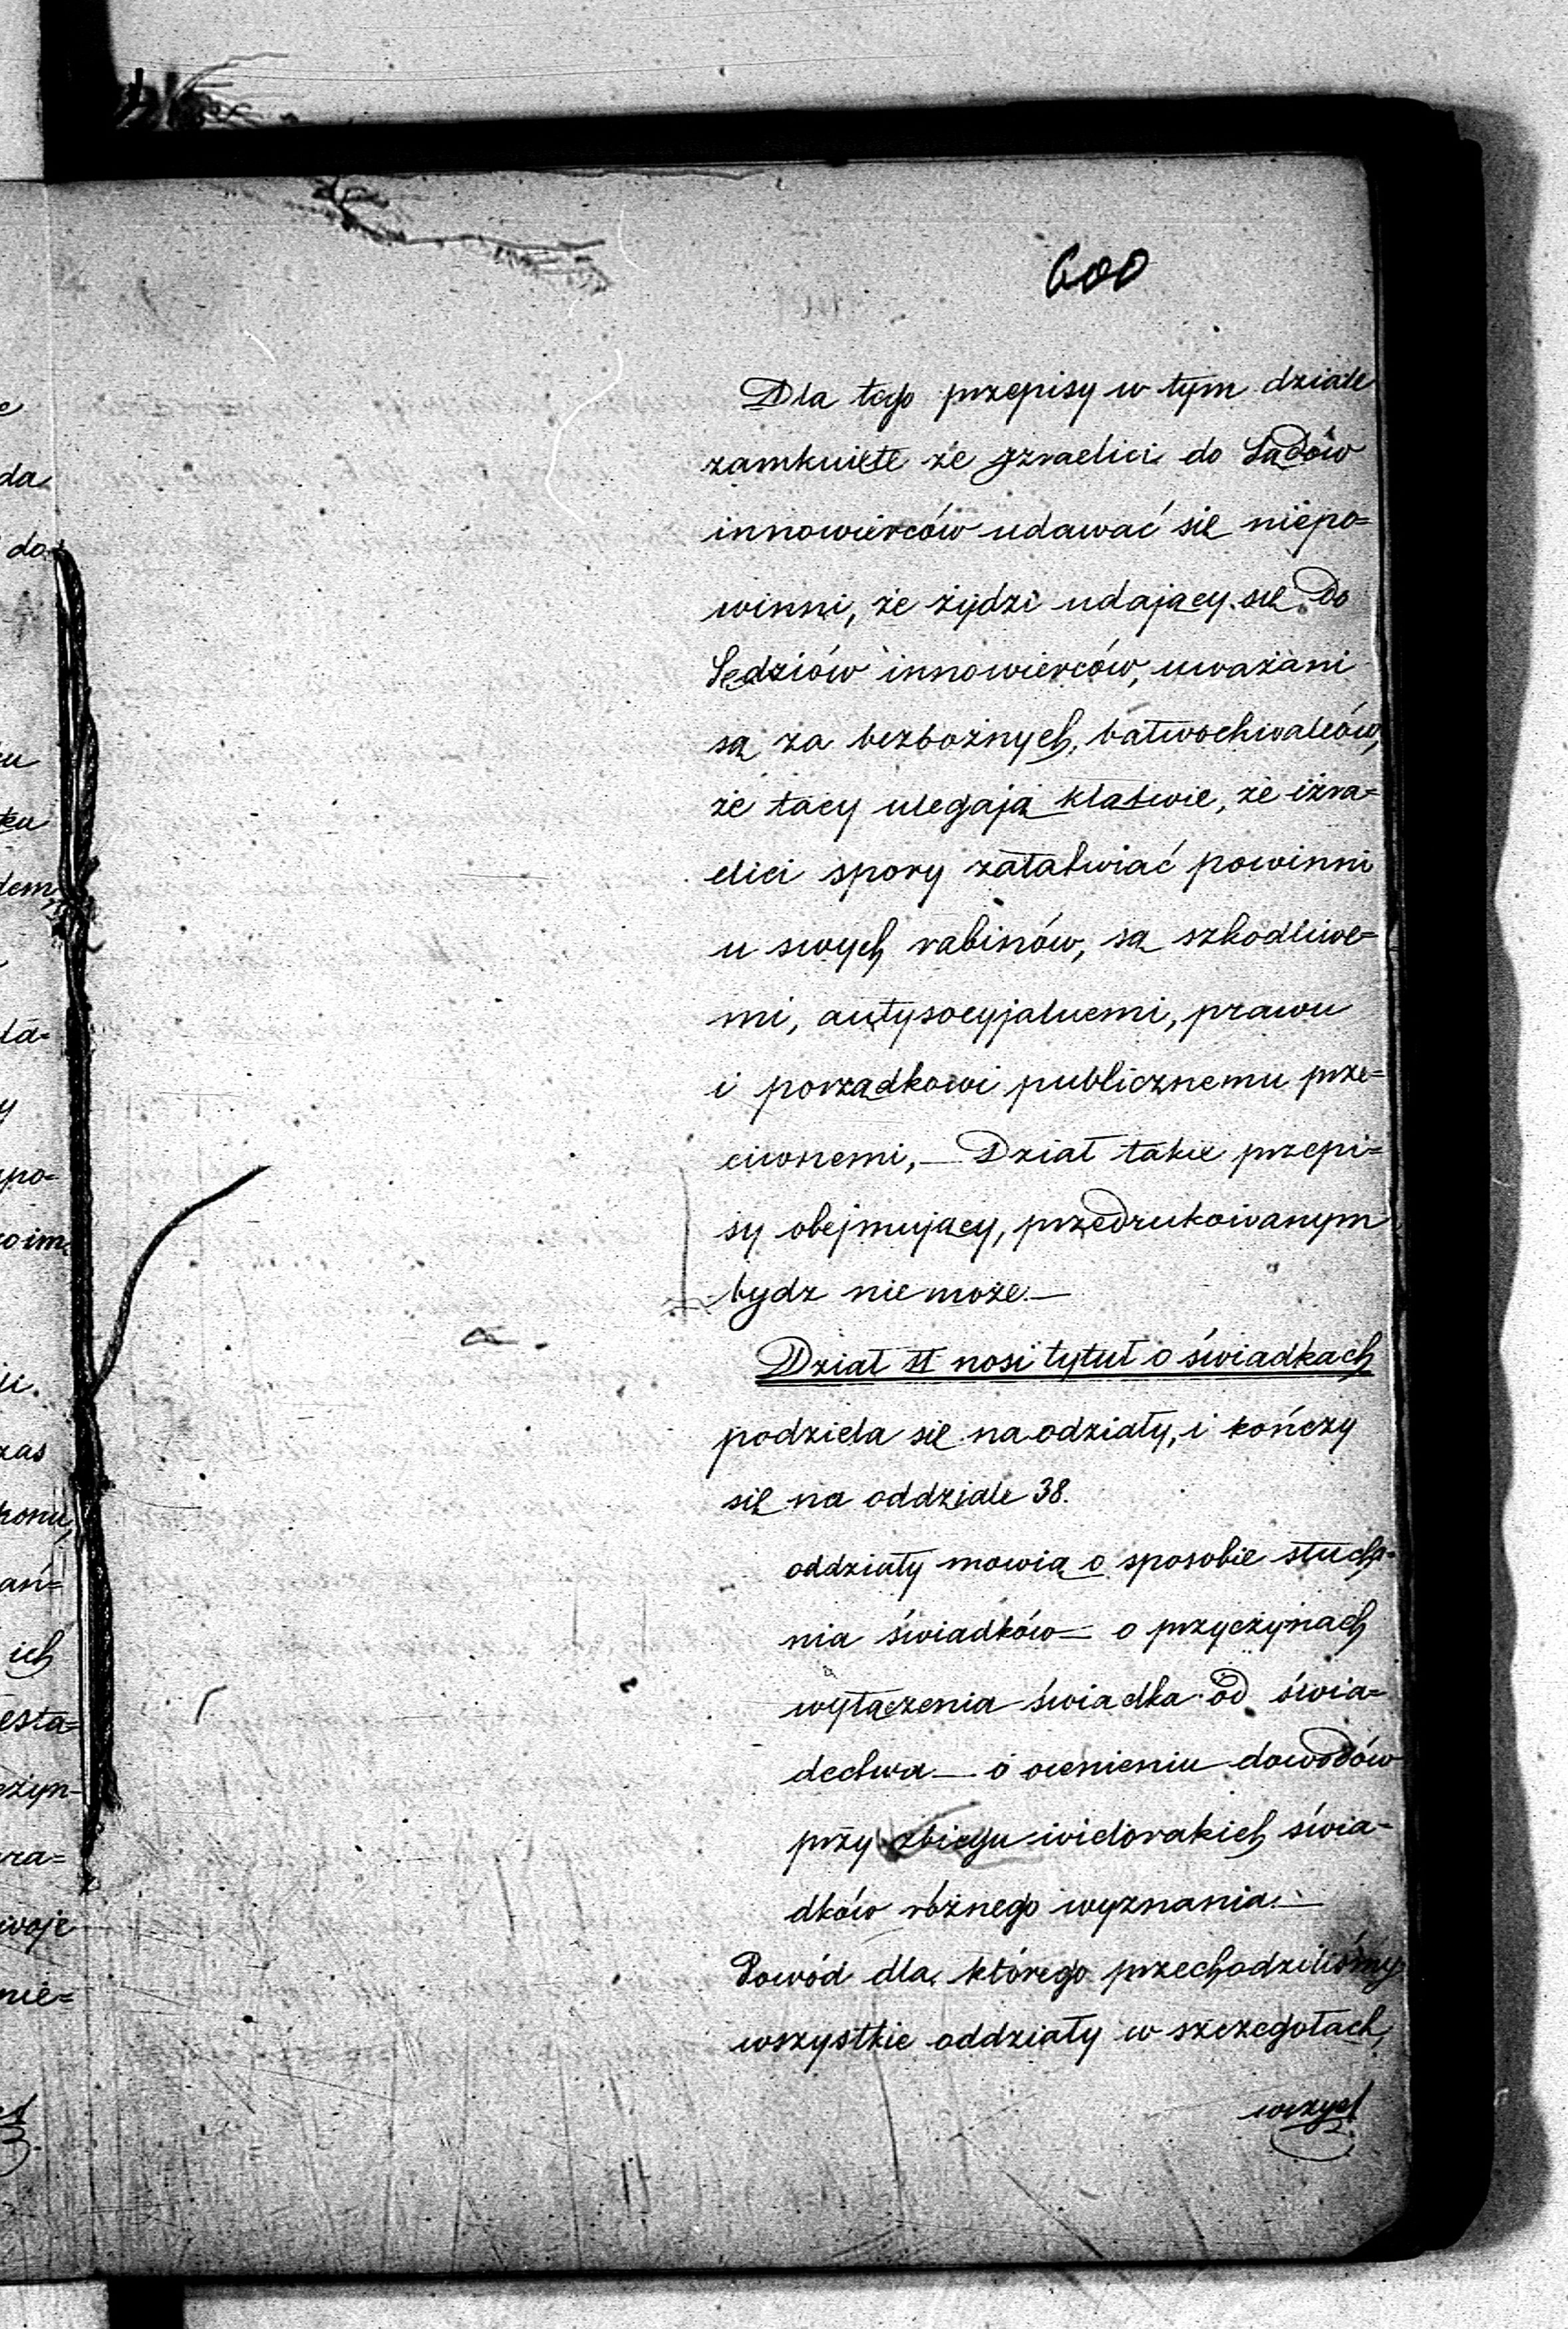 600
Dla tego przepisy w tym dziale
zamknięte że Izraelici do Sądów
innowierców udawać się niepo=
winni, że żydzi udający się do
Sędziów innowierców, uważani
są za bezbożnych, bałwochwalców,
że tacy ulegają klątwie, że izra=
elici spory załatwiać powinni
u swych rabinów, są szkodliwe=
mi, antysocyjalnemi, prawu
i porządkowi publicznemu prze=
ciwnemi,— Dział takie przepi=
sy obejmujący, przedrukowanym
bydz nie może.—
Dział II nosi tytuł o świadkach
podziela się na odziały, i kończy
się na oddziale 38.
oddziały mowią o sposobie słucha=
nia świadków— o przyczynach
wyłączenia świadka od świa=
dectwa— o ocenieniu dowodów
przy zbiegu wielorakich świa=
dków różnego wyznania.—
Powód dla którego przechodziliśmy
wszystkie oddziały w szczegołach,